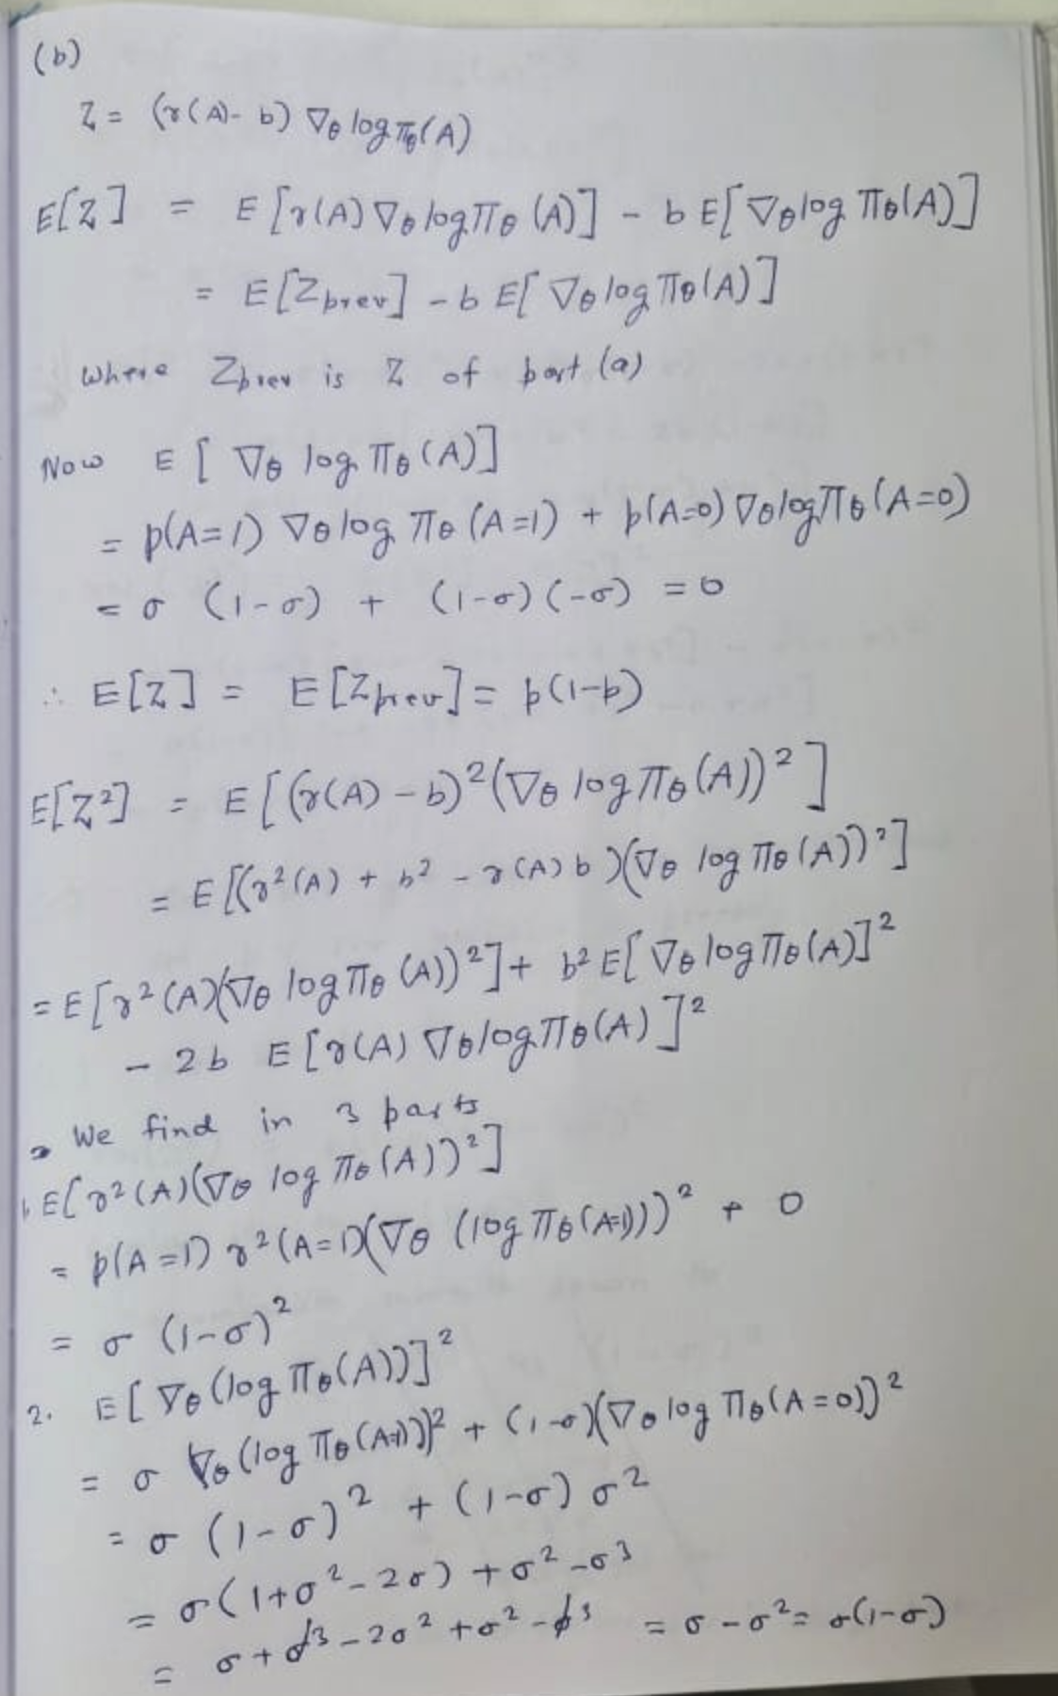 (b)
Z = (r(A) - b) ∇θ log πθ(A)
E[Z] = E[r(A) ∇θ log πθ (A)] - b E[∇θ log πθ(A)]
= E[Zprev] - b E[∇θ log πθ(A)]
Where Zprev is Z of part (a)
Now E[∇θ log πθ(A)]
= p(A=1) ∇θ log πθ (A=1) + p(A=0) ∇θ log πθ (A=0)
= σ (1-σ) + (1-σ)(-σ) = 0
∴ E[Z] = E[Zprev] = p(1-p)
E[Z²] = E[(r(A) - b)² (∇θ log πθ(A))²]
= E[(r²(A) + b² - r(A) b)(∇θ log πθ(A))²]
= E[r²(A)(∇θ log πθ (A))²] + b² E[∇θ log πθ(A)]²
- 2b E[r(A) ∇θ log πθ(A)]²
We find in 3 parts
1. E[r²(A)(∇θ log πθ(A))²]
= p(A=1) r²(A=1)(∇θ (log πθ(A=1)))² + 0
= σ (1-σ)²
2. E[∇θ (log πθ(A))]²
= σ ∇θ (log πθ(A=1))² + (1-σ)(∇θ log πθ(A=0))²
= σ (1-σ)² + (1-σ) σ²
= σ(1+σ²-2σ) + σ² - σ³
= σ + σ³ - 2σ² + σ² - σ³ = σ - σ² = σ(1-σ)